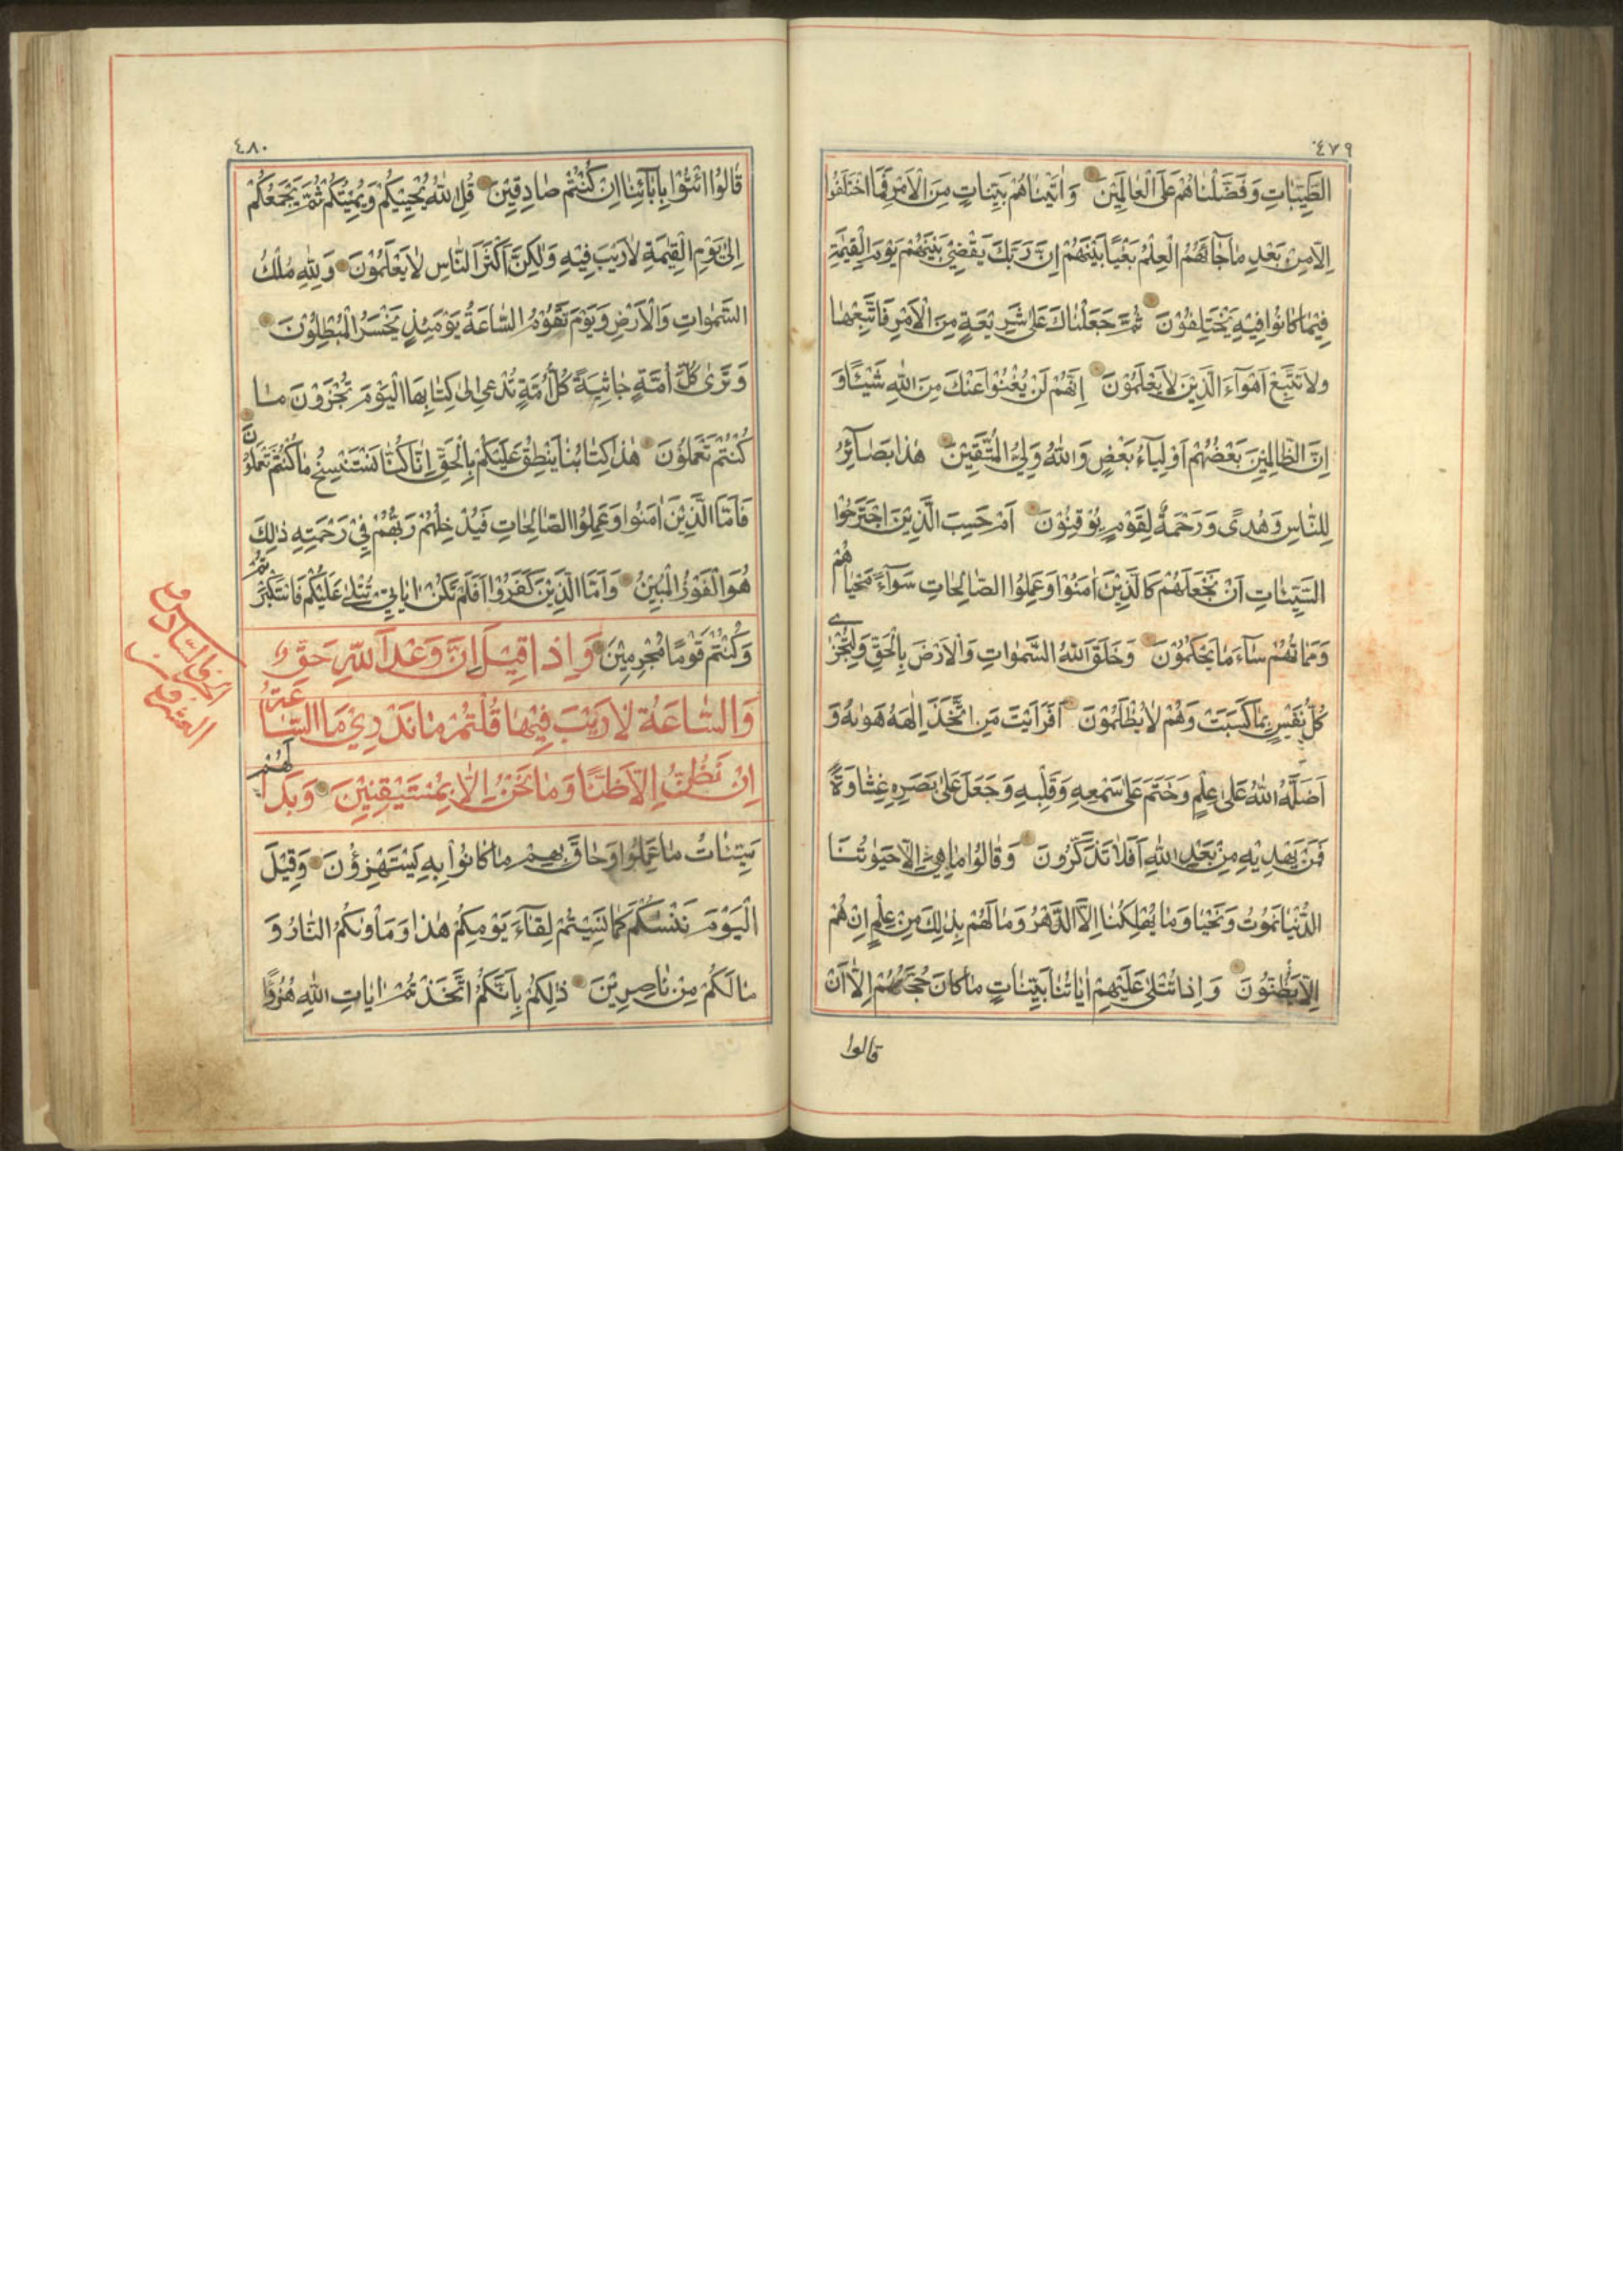 ٤٧٩
الطَّيِّبَاتِ وَفَضَّلْنَاهُمْ عَلَى الْعَالَمِيْنَ وَاٰتَيْنَاهُمْ بَيِّنَاتٍ مِنَ الْاَمْرِ فَمَا اخْتَلَفُوا
اِلَّا مِنْ بَعْدِ مَا جَآءَهُمُ الْعِلْمُ بَغْيًا بَيْنَهُمْ اِنَّ رَبَّكَ يَقْضِيْ بَيْنَهُمْ يَوْمَ الْقِيٰمَةِ
فِيْمَا كَانُوا فِيْهِ يَخْتَلِفُوْنَ ثُمَّ جَعَلْنَاكَ عَلٰى شَرِيْعَةٍ مِنَ الْاَمْرِ فَاتَّبِعْهَا
وَلَا تَتَّبِعْ اَهْوَآءَ الَّذِيْنَ لَا يَعْلَمُوْنَ اِنَّهُمْ لَنْ يُغْنُوْا عَنْكَ مِنَ اللّٰهِ شَيْئًا وَ
اِنَّ الظَّالِمِيْنَ بَعْضُهُمْ اَوْلِيَآءُ بَعْضٍ وَاللّٰهُ وَلِيُّ الْمُتَّقِيْنَ هٰذَا بَصَآئِرُ
لِلنَّاسِ وَهُدًى وَرَحْمَةٌ لِقَوْمٍ يُوْقِنُوْنَ اَمْ حَسِبَ الَّذِيْنَ اجْتَرَحُوا
السَّيِّئَاتِ اَنْ نَجْعَلَهُمْ كَالَّذِيْنَ اٰمَنُوْا وَعَمِلُوا الصَّالِحَاتِ سَوَآءً مَحْيَاهُمْ
وَمَمَاتُهُمْ سَآءَ مَا يَحْكُمُوْنَ وَخَلَقَ اللّٰهُ السَّمٰوَاتِ وَالْاَرْضَ بِالْحَقِّ وَلِتُجْزٰى
كُلُّ نَفْسٍ بِمَا كَسَبَتْ وَهُمْ لَا يُظْلَمُوْنَ اَفَرَاَيْتَ مَنِ اتَّخَذَ اِلٰهَهُ هَوٰيهُ وَ
اَضَلَّهُ اللّٰهُ عَلٰى عِلْمٍ وَخَتَمَ عَلٰى سَمْعِهِ وَقَلْبِهِ وَجَعَلَ عَلٰى بَصَرِهِ غِشَاوَةً
فَمَنْ يَهْدِيْهِ مِنْ بَعْدِ اللّٰهِ اَفَلَا تَذَكَّرُونَ وَقَالُوْا مَا هِيَ اِلَّا حَيٰوتُنَا
الدُّنْيَا نَمُوْتُ وَنَحْيَا وَمَا يُهْلِكُنَا اِلَّا الدَّهْرُ وَمَا لَهُمْ بِذٰلِكَ مِنْ عِلْمٍ اِنْ هُمْ
اِلَّا يَظُنُّوْنَ وَاِذَا تُتْلٰى عَلَيْهِمْ اٰيَاتُنَا بَيِّنَاتٍ مَا كَانَ حُجَّتَهُمْ اِلَّا اَنْ
قالوا
٤٨٠
قَالُوا ائْتُوْا بِاٰبَآئِنَا اِنْ كُنْتُمْ صَادِقِيْنَ قُلِ اللّٰهُ يُحْيِيْكُمْ ثُمَّ يُمِيْتُكُمْ ثُمَّ يَجْمَعُكُمْ
اِلٰى يَوْمِ الْقِيٰمَةِ لَا رَيْبَ فِيْهِ وَلٰكِنَّ اَكْثَرَ النَّاسِ لَا يَعْلَمُوْنَ وَلِلّٰهِ مُلْكُ
السَّمٰوَاتِ وَالْاَرْضِ وَيَوْمَ تَقُوْمُ السَّاعَةُ يَوْمَئِذٍ يَخْسَرُ الْمُبْطِلُوْنَ
وَتَرٰى كُلَّ اُمَّةٍ جَاثِيَةً كُلُّ اُمَّةٍ تُدْعٰى اِلٰى كِتَابِهَا الْيَوْمَ تُجْزَوْنَ مَا
كُنْتُمْ تَعْمَلُوْنَ هٰذَا كِتَابُنَا يَنْطِقُ عَلَيْكُمْ بِالْحَقِّ اِنَّا كُنَّا نَسْتَنْسِخُ مَا كُنْتُمْ تَعْمَلُوْنَ
فَاَمَّا الَّذِيْنَ اٰمَنُوا وَعَمِلُوا الصَّالِحَاتِ فَيُدْخِلُهُمْ رَبُّهُمْ فِيْ رَحْمَتِهِ ذٰلِكَ
هُوَ الْفَوْزُ الْمُبِيْنُ وَاَمَّا الَّذِيْنَ كَفَرُوْا اَفَلَمْ تَكُنْ اٰيَاتِيْ تُتْلٰى عَلَيْكُمْ فَاسْتَكْبَرْتُمْ
وَكُنْتُمْ قَوْمًا مُجْرِمِيْنَ وَاِذَا قِيْلَ اِنَّ وَعْدَ اللّٰهِ حَقٌّ
وَالسَّاعَةُ لَا رَيْبَ فِيْهَا قُلْتُمْ مَا نَدْرِيْ مَا السَّاعَةُ
اِنْ نَظُنُّ اِلَّا ظَنًّا وَمَا نَحْنُ بِمُسْتَيْقِنِيْنَ وَبَدَا لَهُمْ
سَيِّئَاتُ مَا عَمِلُوا وَحَاقَ بِهِمْ مَا كَانُوْا بِهِ يَسْتَهْزِؤُنَ وَقِيْلَ
الْيَوْمَ نَنْسٰىكُمْ كَمَا نَسِيْتُمْ لِقَآءَ يَوْمِكُمْ هٰذَا وَمَأْوٰىكُمُ النَّارُ وَ
مَا لَكُمْ مِنْ نَاصِرِيْنَ ذٰلِكُمْ بِاَنَّكُمُ اتَّخَذْتُمْ اٰيَاتِ اللّٰهِ هُزُوًا
الجزء السادس
والعشرون